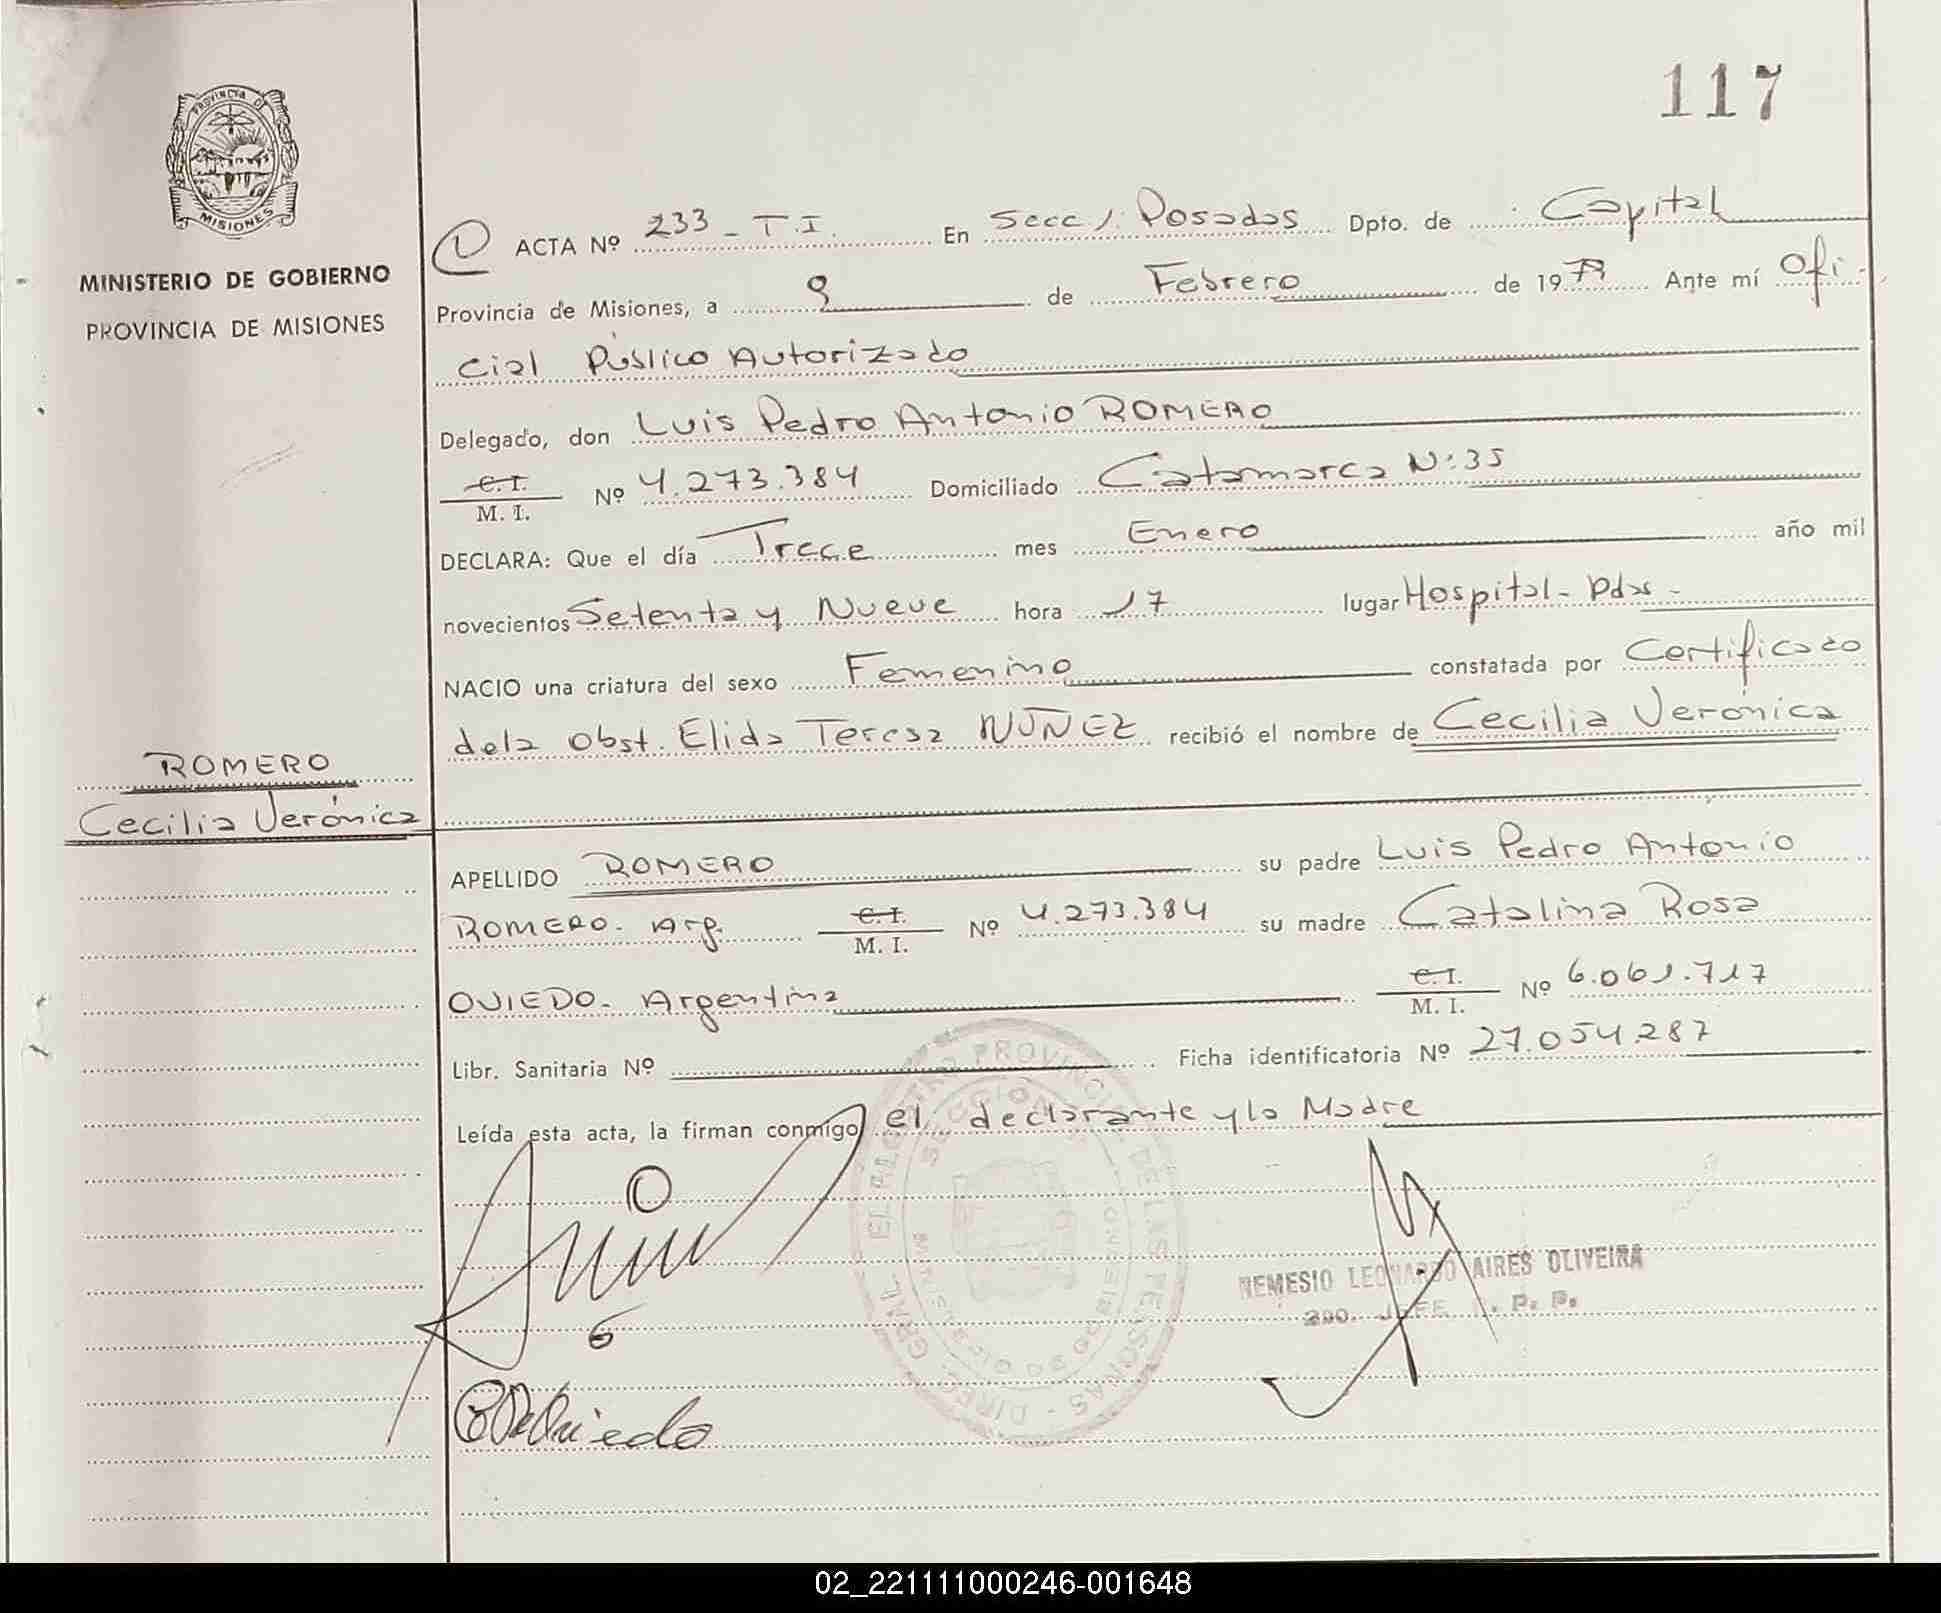 117
PROVINCIA DE
MISIONES
MINISTERIO DE GOBIERNO
PROVINCIA DE MISIONES
ROMERO
Cecilia Verónica
1 ACTA Nº 233 - T.I. En Secc 1: Posadas Dpto. de Capital
Provincia de Misiones, a 9 de Febrero de 1979 Ante mí Ofi-
cial Público Autorizado
Delegado, don Luis Pedro Antonio ROMERO
C.I. M. I. Nº 4.273.384 Domiciliado Catamarca N: 35
DECLARA: Que el día Trece mes Enero año mil
novecientos Setenta y Nueve hora 17 lugar Hospital - Pdas -
NACIO una criatura del sexo Femenino constatada por Certificado
dela Obst. Elida Teresa NUÑEZ recibió el nombre de Cecilia Verónica
APELLIDO ROMERO su padre Luis Pedro Antonio
ROMERO - Arg. C.I. M. I. Nº 4.273.384 su madre Catalina Rosa
OVIEDO - Argentina C.I. M. I. Nº 6.061.717
Libr. Sanitaria Nº Ficha identificatoria Nº 27.054.287
Leída esta acta, la firman conmigo el declarante y la Madre
NEMESIO LEONARDO AIRES OLIVEIRA
2do. JEFE R. P. P.
02_221111000246-001648